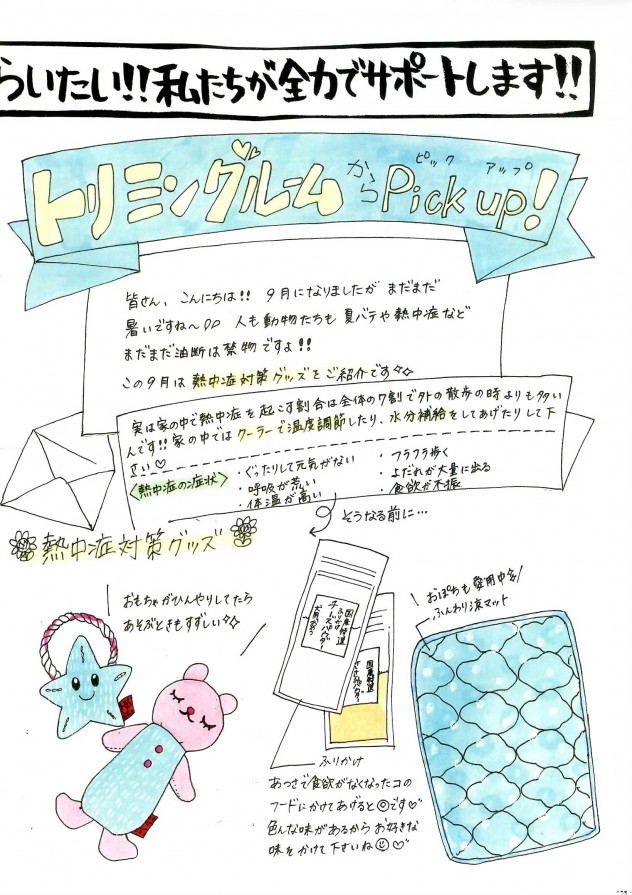 らいたい!!私たちが全力でサポートします!!
トリミングルームからPick up!
ピック アップ
皆さん、こんにちは!! 9月になりましたが まだまだ
暑いですね〜 人も動物たちも 夏バテや熱中症など
まだまだ油断は禁物ですよ!!
この9月は 熱中症対策グッズをご紹介です☆☆
実は家の中で熱中症を起こす割合は全体の7割で外の散歩の時よりも多い
んです!!家の中ではクーラーで温度調節したり、水分補給をしてあげたりして下
さい♡
〈熱中症の症状〉
・ぐったりして元気がない
・呼吸が荒い
・体温が高い
・フラフラ歩く
・よだれが大量に出る
・食欲が不振
そうなる前に…
熱中症対策グッズ
おもちゃがひんやりしてたら
あそぶときもすずしい☆☆
国産特選
ふりかけ
チーズパウダー
国産特選
ささみパウダー
おぽちも愛用中☆
ふんわり涼マット
ふりかけ
あつさで食欲がなくなったコの
フードにかけてあげると◎です♡
色んな味があるからお好きな
味をかけて下さいね☺♡